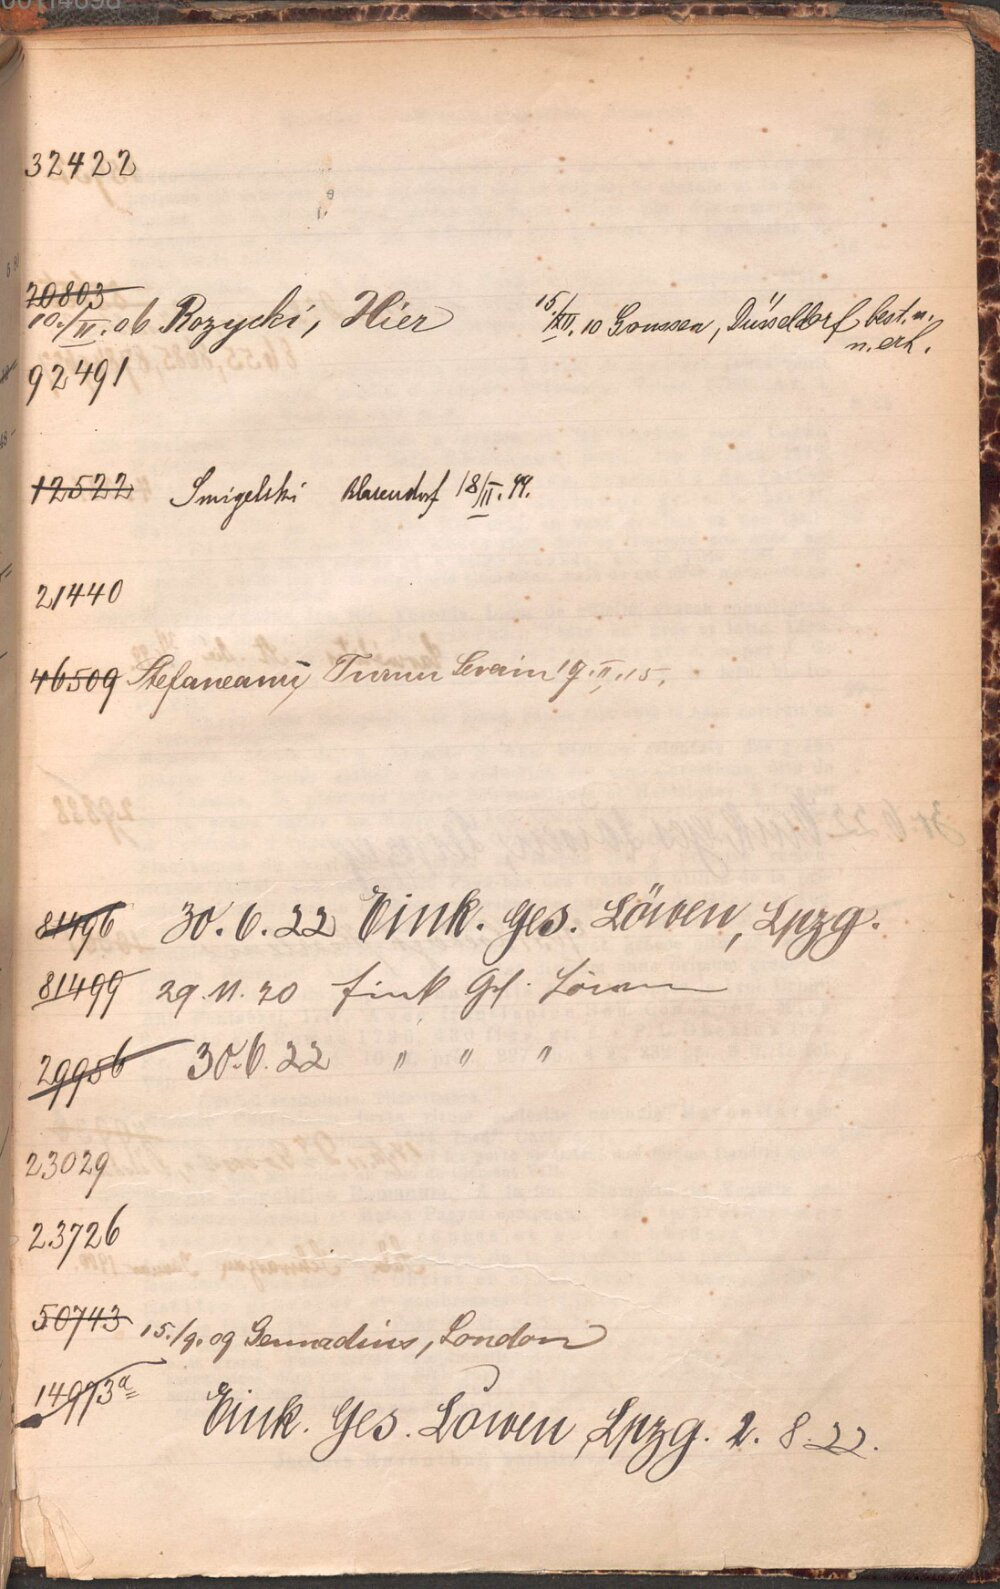 32422
20803
10./II. 06 Rozycki, Hier 15./XII. 10 Goussen, Düsseldorf best. u.
n. erh.
92491
12522 Smigelski Blasendorf 18/II. 99.
21440
46509 Stefaneanu, Turnu Severin 19. II. 15.
81496 30.6.22 Eink. Ges. Löwen, Lpzg.
81499 29.11.20 Eink Gs. Löwen
29956 30.6.22 " " "
23029
23726
50743 15./9. 09 Gennadius, London
14973a Eink. Ges. Löwen, Lpzg. 2. 8. 22.